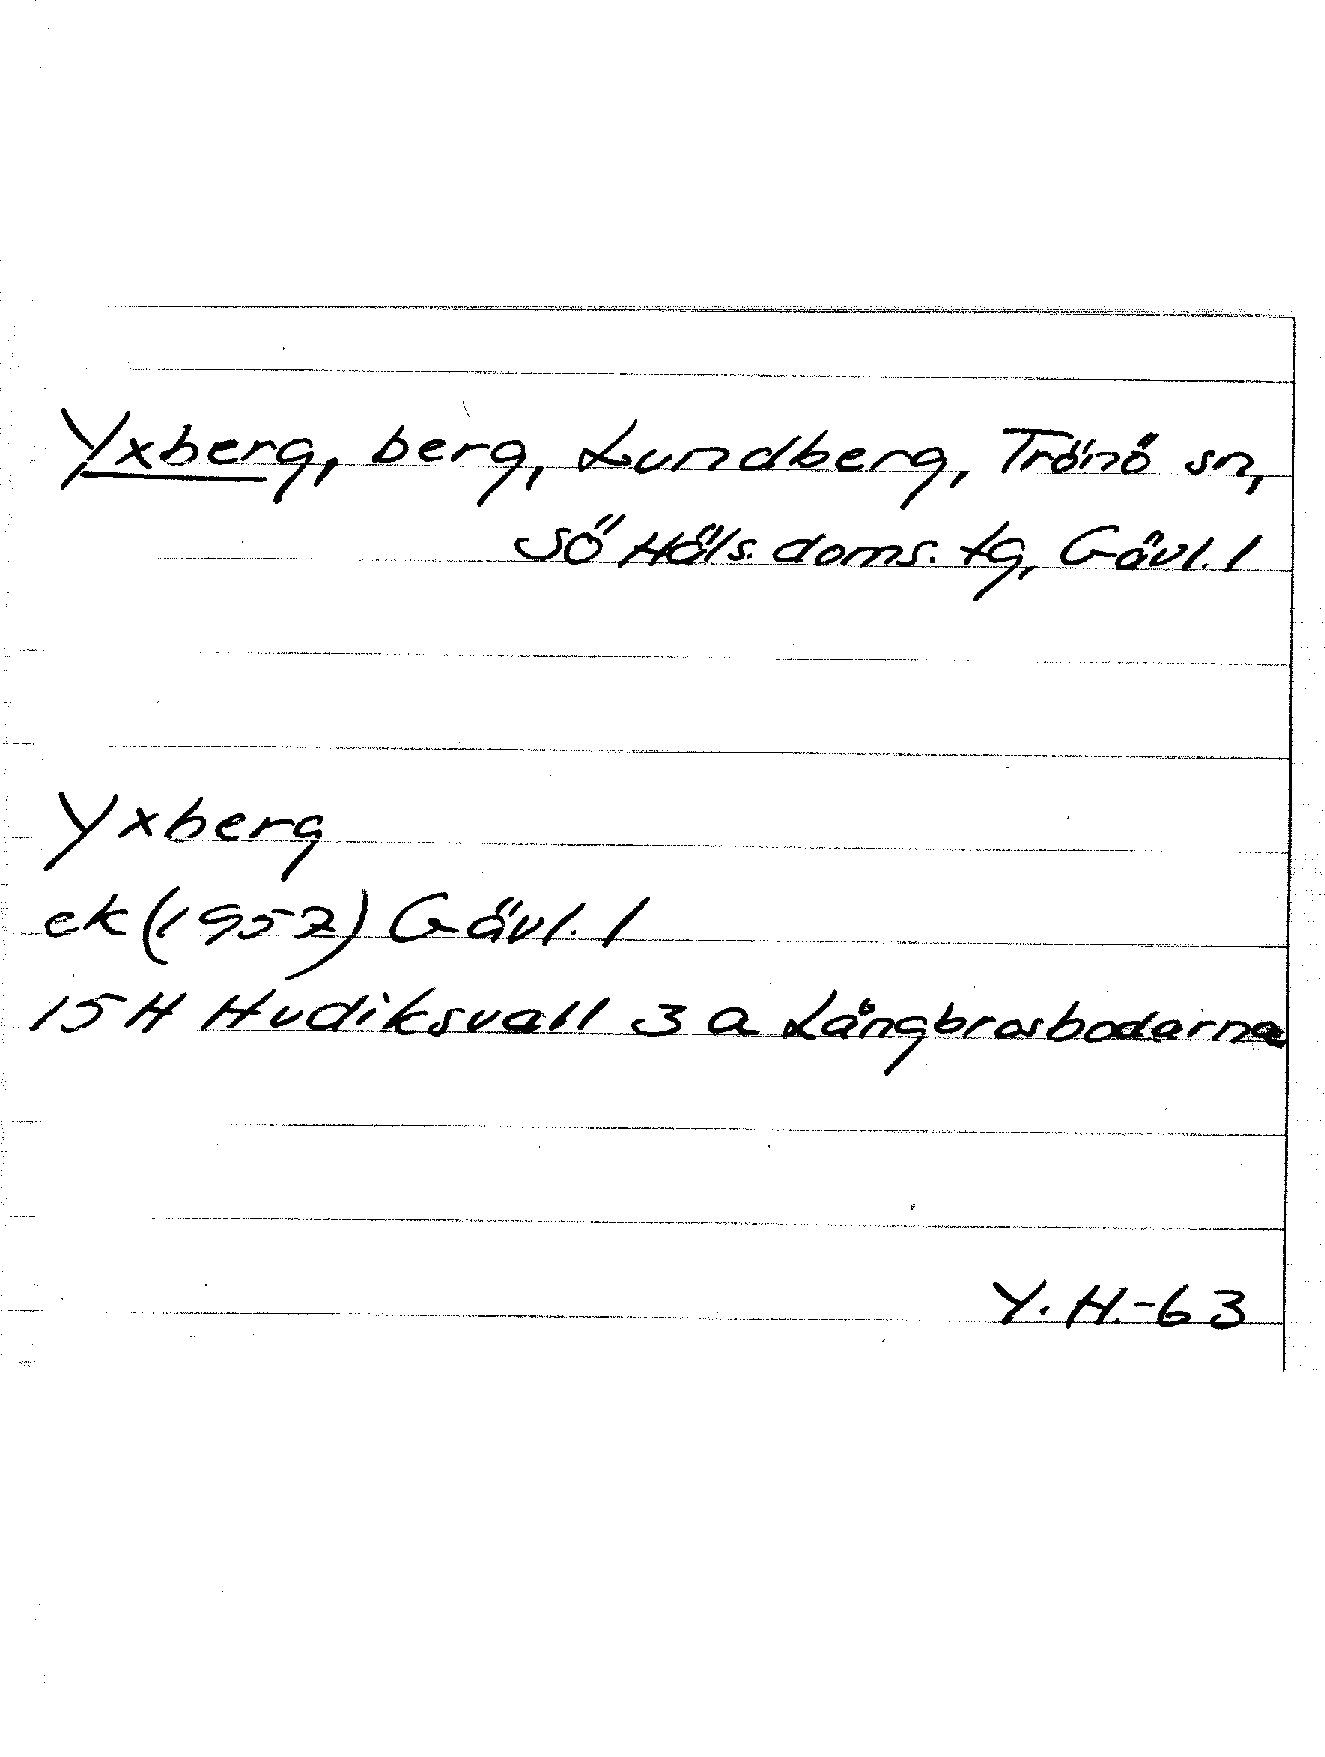 Yxberg, berg, Lundberg, Trönö sn,
Sö Häls. doms. tg, Gävl. l
Yxberg
ek (1957) Gävl. l
15 H Hudiksvall 3 a Långbrosbodarna
Y. H.-63